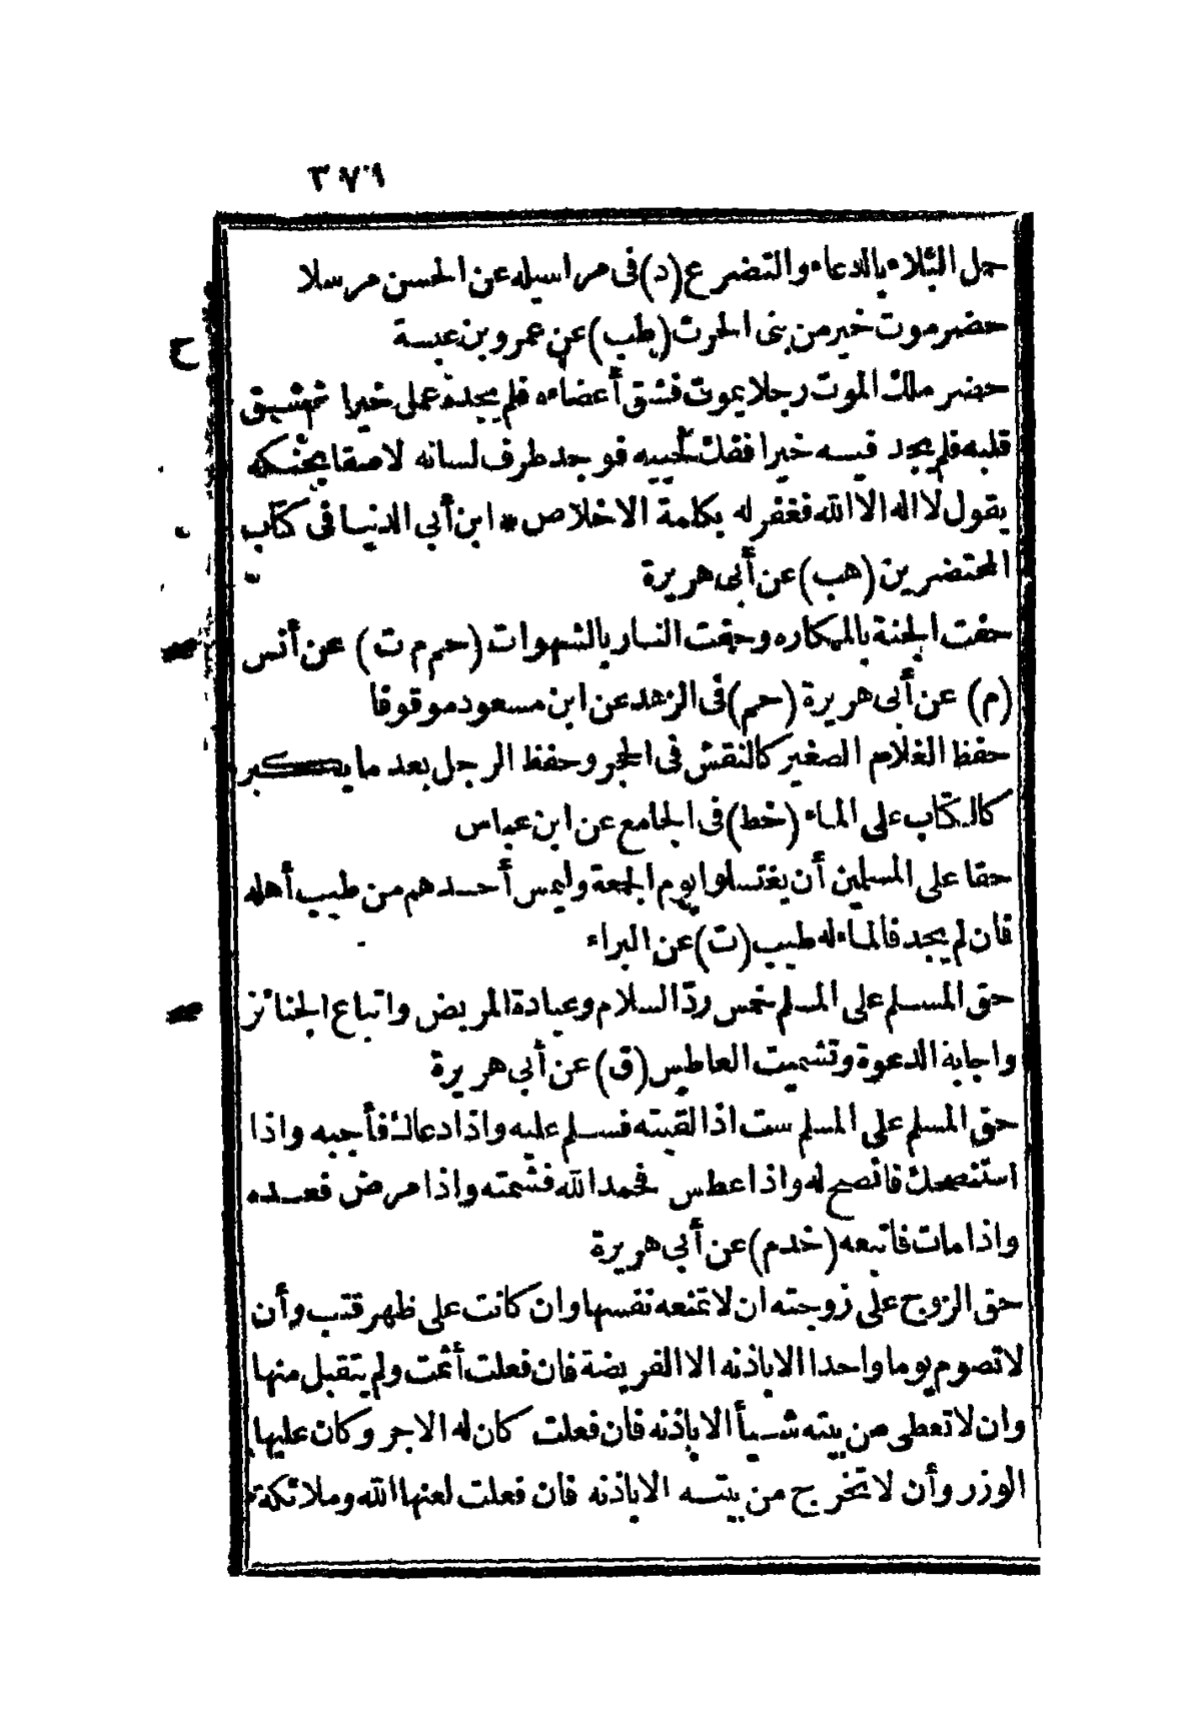 ٣٧٩
حمل البلاء بالدعاء والتضرع (د) فى مراسيله عن الحسن مرسلا
ح
حضرموت خير من بنى الحرث (طب) عن عمرو بن عبسة
حضر ملك الموت رجلا يموت فشق أعضاءه فلم يجده عمل خيرا ثم شق
قلبه فلم يجد فيه خيرا ففك لحييه فوجد طرف لسانه لاصقا بحنكه
يقول لا اله الا الله فغفر له بكلمة الاخلاص * ابن أبي الدنيا فى كتاب
المحتضرين (هب) عن أبى هريرة
حفت الجنة بالمكاره وحفت النار بالشهوات (حم م ت) عن أنس
(م) عن أبى هريرة (حم) فى الزهد عن ابن مسعود موقوفا
حفظ الغلام الصغير كالنقش فى الحجر وحفظ الرجل بعد ما يكبر
كالكتاب على الماء (خط) فى الجامع عن ابن عباس
حقا على المسلمين أن يغتسلوا يوم الجمعة وليمس أحدهم من طيب أهله
فان لم يجد فالماء له طيب (ت) عن البراء
حق المسلم على المسلم خمس ردّ السلام وعيادة المريض واتباع الجنائز
واجابة الدعوة وتشميت العاطس (ق) عن أبى هريرة
حق المسلم على المسلم ست اذا لقيته فسلم عليه واذا دعاك فأجبه واذا
استنصحك فانصح له واذا عطس فحمد الله فشمته واذا مرض فعده
واذا مات فاتبعه (خدم) عن أبي هريرة
حق الزوج على زوجته ان لا تمنعه نفسها وان كانت على ظهر قتب وأن
لا تصوم يوما واحدا الا باذنه الا الفريضة فان فعلت أثمت ولم يتقبل منها
وان لا تعطى من بيته شيأ الا باذنه فان فعلت كان له الاجر وكان عليها
الوزر وأن لا تخرج من بيته الا باذنه فان فعلت لعنها الله وملائكة